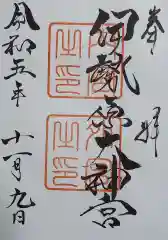 奉拝
伊勢大神宮
令和五年
十一月九日